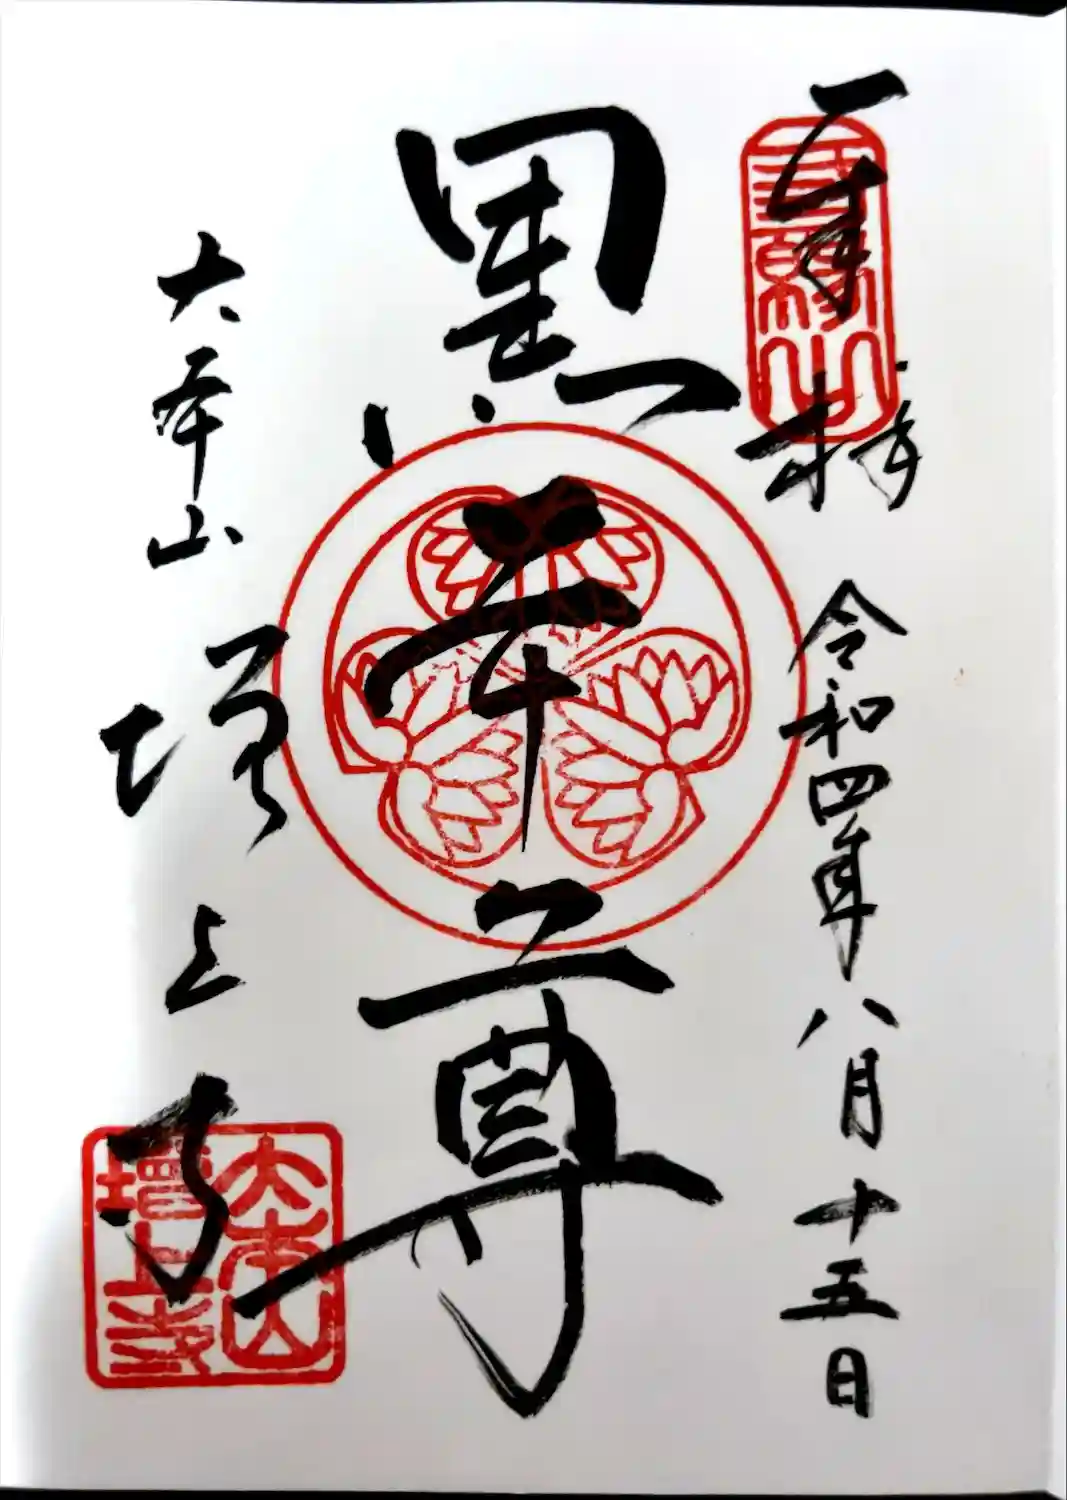 奉拝 令和四年八月十五日
黒本尊
大本山
増上寺
三縁山
大本山
増上寺